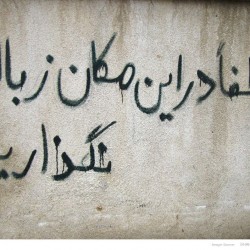 لطفاً در این مکان زباله
نگذارید